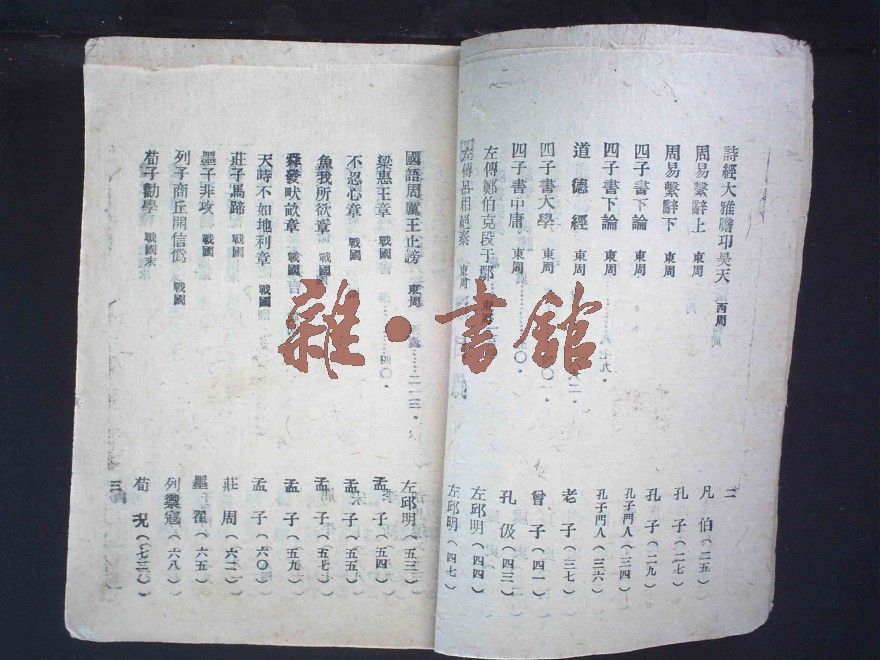 二
詩經大雅瞻卬昊天 西周 凡伯(二五)
周易繫辭上 東周 孔子(二七)
周易繫辭下 東周 孔子(二九)
四子書下論 東周 孔子門人(三四)
四子書下論 東周 孔子門人(三六)
道德經 東周 老子(三七)
四子書大學 東周 曾子(四一)
四子書中庸 東周 孔伋(四三)
左傳鄭伯克段于鄢 東周 左邱明(四四)
左傳呂相絕秦 東周 左邱明(四七)
國語周厲王止謗 東周 左邱明(五三)
梁惠王章 戰國 孟子(五四)
不忍心章 戰國 孟子(五五)
魚我所欲章 戰國 孟子(五七)
舜發畎畝章 戰國 孟子(五九)
天時不如地利章 戰國 孟子(六〇)
莊子馬蹄 戰國 莊周(六二)
墨子非攻 戰國 墨翟(六五)
列子商丘開信僞 戰國 列禦寇(六八)
荀子勸學 戰國末 荀況(七二)
三
雜·書館